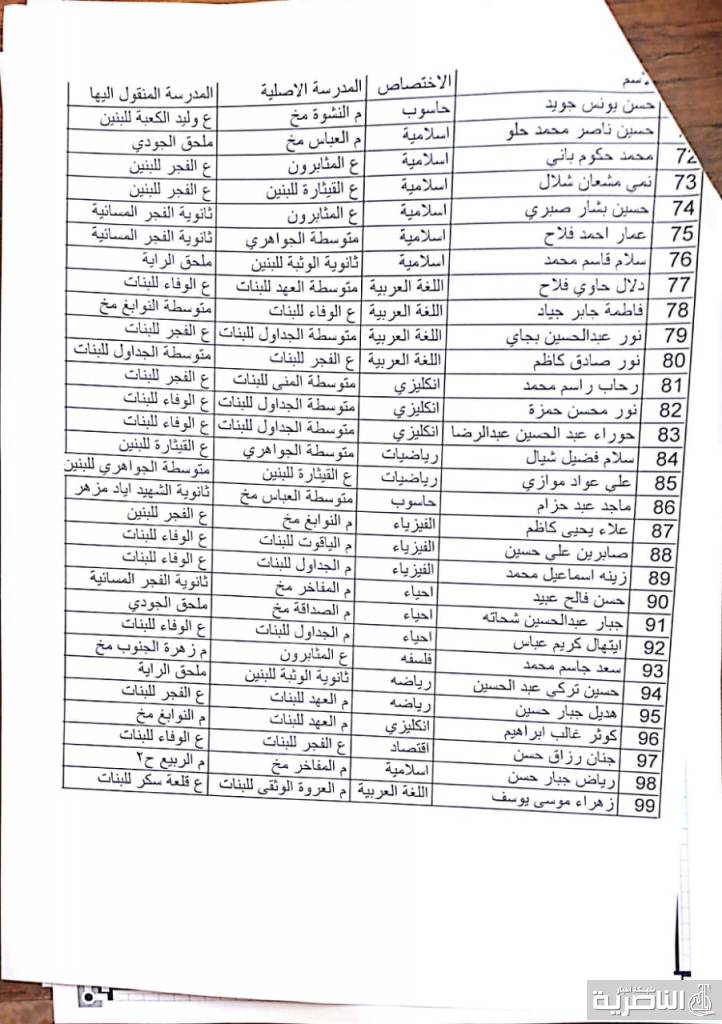 الاسم الاختصاص المدرسة الاصلية المدرسة المنقول اليها
حسن يونس جويد حاسوب م النشوة مخ ع وليد الكعبة للبنين
حسين ناصر محمد حلو اسلامية م العباس مخ ملحق الجودي
72 محمد حكوم باني اسلامية ع المثابرون ع الفجر للبنين
73 نمي مشعان شلال اسلامية ع القيثارة للبنين ع الفجر للبنين
74 حسين بشار صبري اسلامية ع المثابرون ثانوية الفجر المسائية
75 عمار احمد فلاح اسلامية متوسطة الجواهري ثانوية الفجر المسائية
76 سلام قاسم محمد اسلامية ثانوية الوثبة للبنين ملحق الراية
77 دلال حاوي فلاح اللغة العربية متوسطة العهد للبنات ع الوفاء للبنات
78 فاطمة جابر جياد اللغة العربية ع الوفاء للبنات متوسطة النوابغ مخ
79 نور عبدالحسين بجاي اللغة العربية متوسطة الجداول للبنات ع الفجر للبنات
80 نور صادق كاظم اللغة العربية ع الفجر للبنات متوسطة الجداول للبنات
81 رحاب راسم محمد انكليزي متوسطة المنى للبنات ع الفجر للبنات
82 نور محسن حمزة انكليزي متوسطة الجداول للبنات ع الوفاء للبنات
83 حوراء عبد الحسين عبدالرضا انكليزي متوسطة الجداول للبنات ع الوفاء للبنات
84 سلام فضيل شيال رياضيات متوسطة الجواهري ع القيثارة للبنين
85 علي عواد موازي رياضيات ع القيثارة للبنين متوسطة الجواهري للبنين
86 ماجد عبد حزام حاسوب متوسطة العباس مخ ثانوية الشهيد اياد مزهر
87 علاء يحيى كاظم الفيزياء م النوابغ مخ ع الفجر للبنين
88 صابرين علي حسين الفيزياء م الياقوت للبنات ع الوفاء للبنات
89 زينه اسماعيل محمد الفيزياء م الجداول للبنات ع الوفاء للبنات
90 حسن فالح عبيد احياء م المفاخر مخ ثانوية الفجر المسائية
91 جبار عبدالحسين شحاته احياء م الصداقة مخ ملحق الجودي
92 ابتهال كريم عباس احياء م الجداول للبنات ع الوفاء للبنات
93 سعد جاسم محمد فلسفه ع المثابرون م زهرة الجنوب مخ
94 حسين تركي عبد الحسين رياضه ثانوية الوثبة للبنين ملحق الراية
95 هديل جبار حسين رياضه م العهد للبنات ع الفجر للبنات
96 كوثر غالب ابراهيم انكليزي م العهد للبنات م النوابغ مخ
97 جنان رزاق حسن اقتصاد ع الفجر للبنات ع الوفاء للبنات
98 رياض جبار حسن اسلامية م المفاخر مخ م الربيع ح٢
99 زهراء موسى يوسف اللغة العربية م العروة الوثقى للبنات ع قلعة سكر للبنات
شبكة أخبار
الناصرية